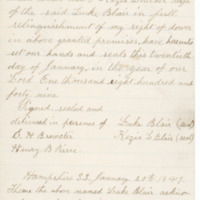 of the said Luke Blair in full
relinquishment of my right of dower
in above granted premises, have hereunto
set our hands and seals this twentieth
day of January, in the year of our
Lord One thousand eight hundred and
forty nine.
Signed sealed and
delivered in presence of Luke Blair (seal)
E. H. Brewster Blair (seal)
Henry B. Pierce
Hampshire SS. January 20th 1849.
Then the above named Luke Blair